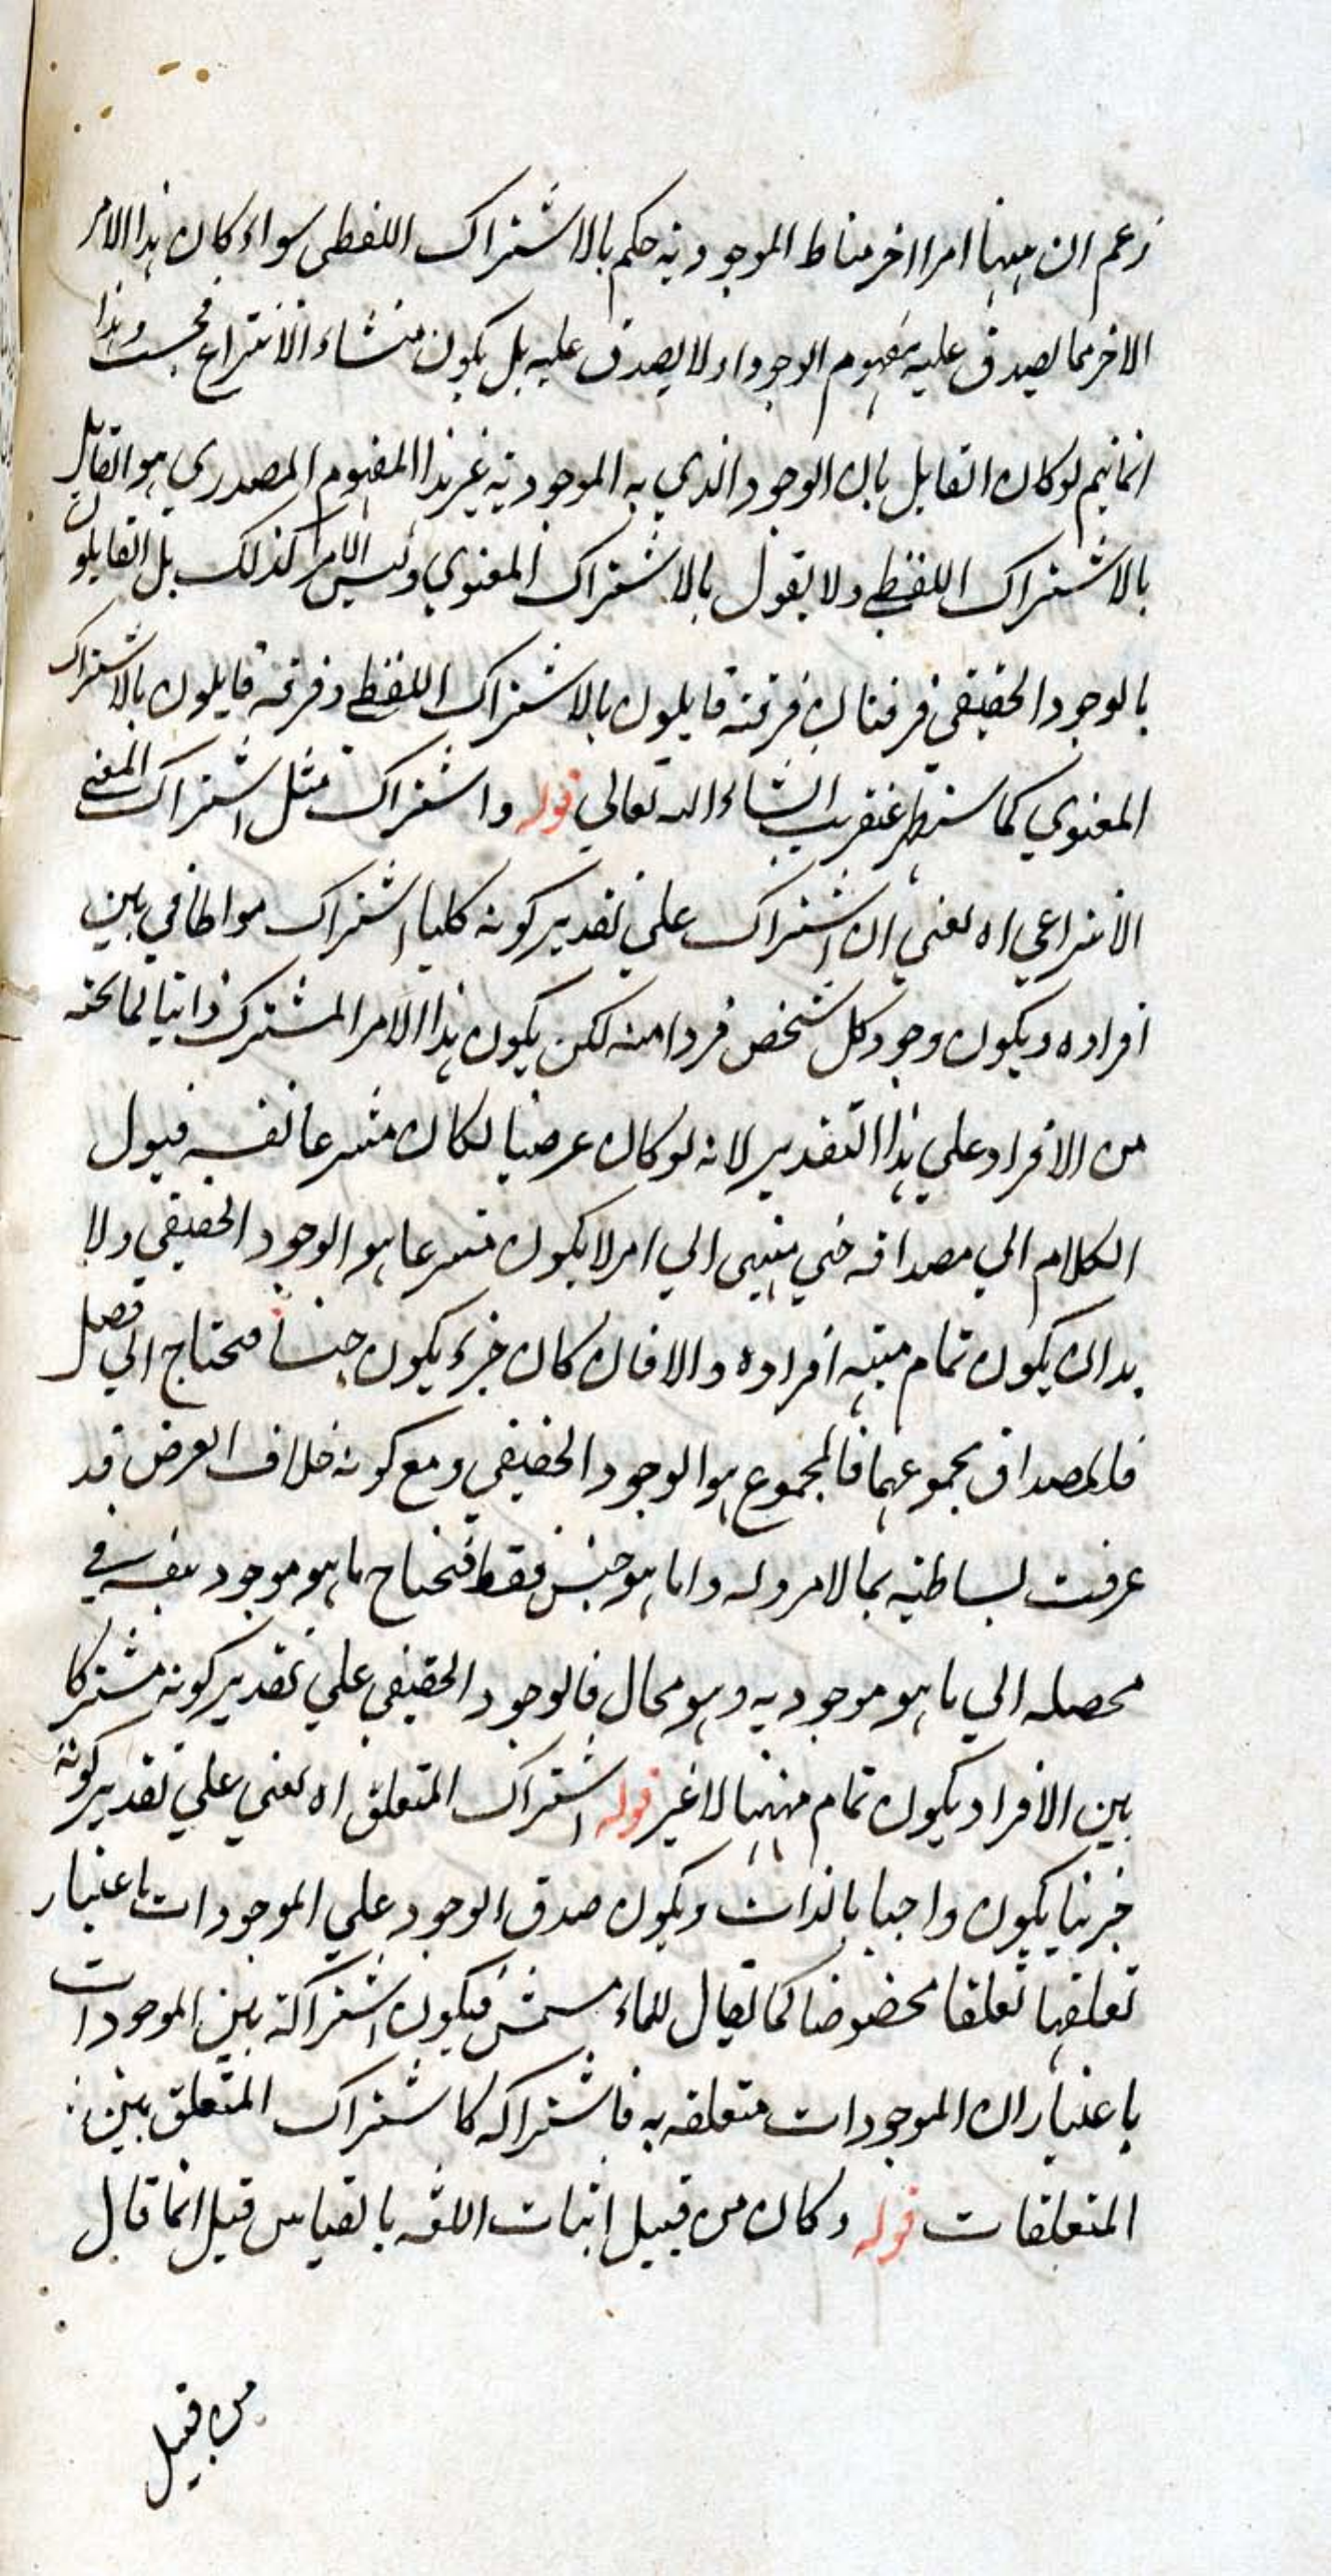 زعم ان ههنا امرا اخر مناط الموجودية حكم بالاشتراك اللفظي سواء كان هذا الامر
الاخر مما يصدق عليه مفهوم الوجود او لا يصدق عليه بل يكون منشاء الانتزاع فحسب وهذا
انما يتم لو كان القايل بان الوجود الذي به الموجودية غير هذا المفهوم المصدري هو القايل
بالاشتراك اللفظي ولا يقول بالاشتراك المعنوي وليس الامر كذلك بل القايلون
بالوجود الحقيقي فرقتان فرقة قايلون بالاشتراك اللفظي وفرقة قايلون بالاشتراك
المعنوي كما ستطهر عنقريب انشاء الله تعالي قوله واشتراك مثل اشتراك المعني
الانتزاعي اه يعني ان اشتراك علي تقدير كونه كليا اشتراك مواطاتي بين
افراده ويكون وجود كل شخص فردا منه لكن يكون هذا الامر المشترك ذاتيا لما تحته
من الافراد علي هذا التقدير لانه لو كان عرضيا لكان منتزعا نفسه فيول
الكلام الي مصداقه حتي ينتهي الي امر لا يكون منتزعا هو الوجود الحقيقي ولا
بد ان يكون تمام مهية افراده والا فان كان جزء يكون جنسا فحتاج الي فصل
فالمصداق مجموعهما فالمجموع هو الوجود الحقيقي ومع كونه خلاف الفرض قد
عرفت بساطته بما لا مر وله واما هو جنس فقط فتحتاج ما هو موجود بنفسه في
محصله الي ما هو موجود به وهو محال فالوجود الحقيقي علي تقدير كونه مشتركا
بين الافراد يكون تمام مهيتها لا غير قوله اشتراك المتعلق اه يعني علي تقدير كونه
جزئيا يكون واجبا بالذات ويكون صدق الوجود علي الموجودات باعتبار
تعلقها تعلقا مخصوصا كما يقال للماء مشمس فيكون اشتراكه بين الموجودات
باعتبار ان الموجودات متعلقه به فاشتراكه كاشتراك المتعلق بين
المتعلقات قوله وكان من قبيل اثبات اللغة بالقياس قيل انما قال
من قبيل